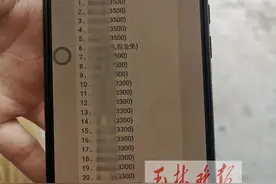 1、(3500)
2、3500)
3、3500)
4、3500)
5、(3500)
6、礼包全免)
7、3500)
8、3500)
9、3500)
10、(3300)
11、(3300)
12、(3300)
13、(3300)
14、3300)
15、(3300)
16、3300)
17、(3300)
18、(3300)
19、(3300)
20、(3300)
玉林晚报